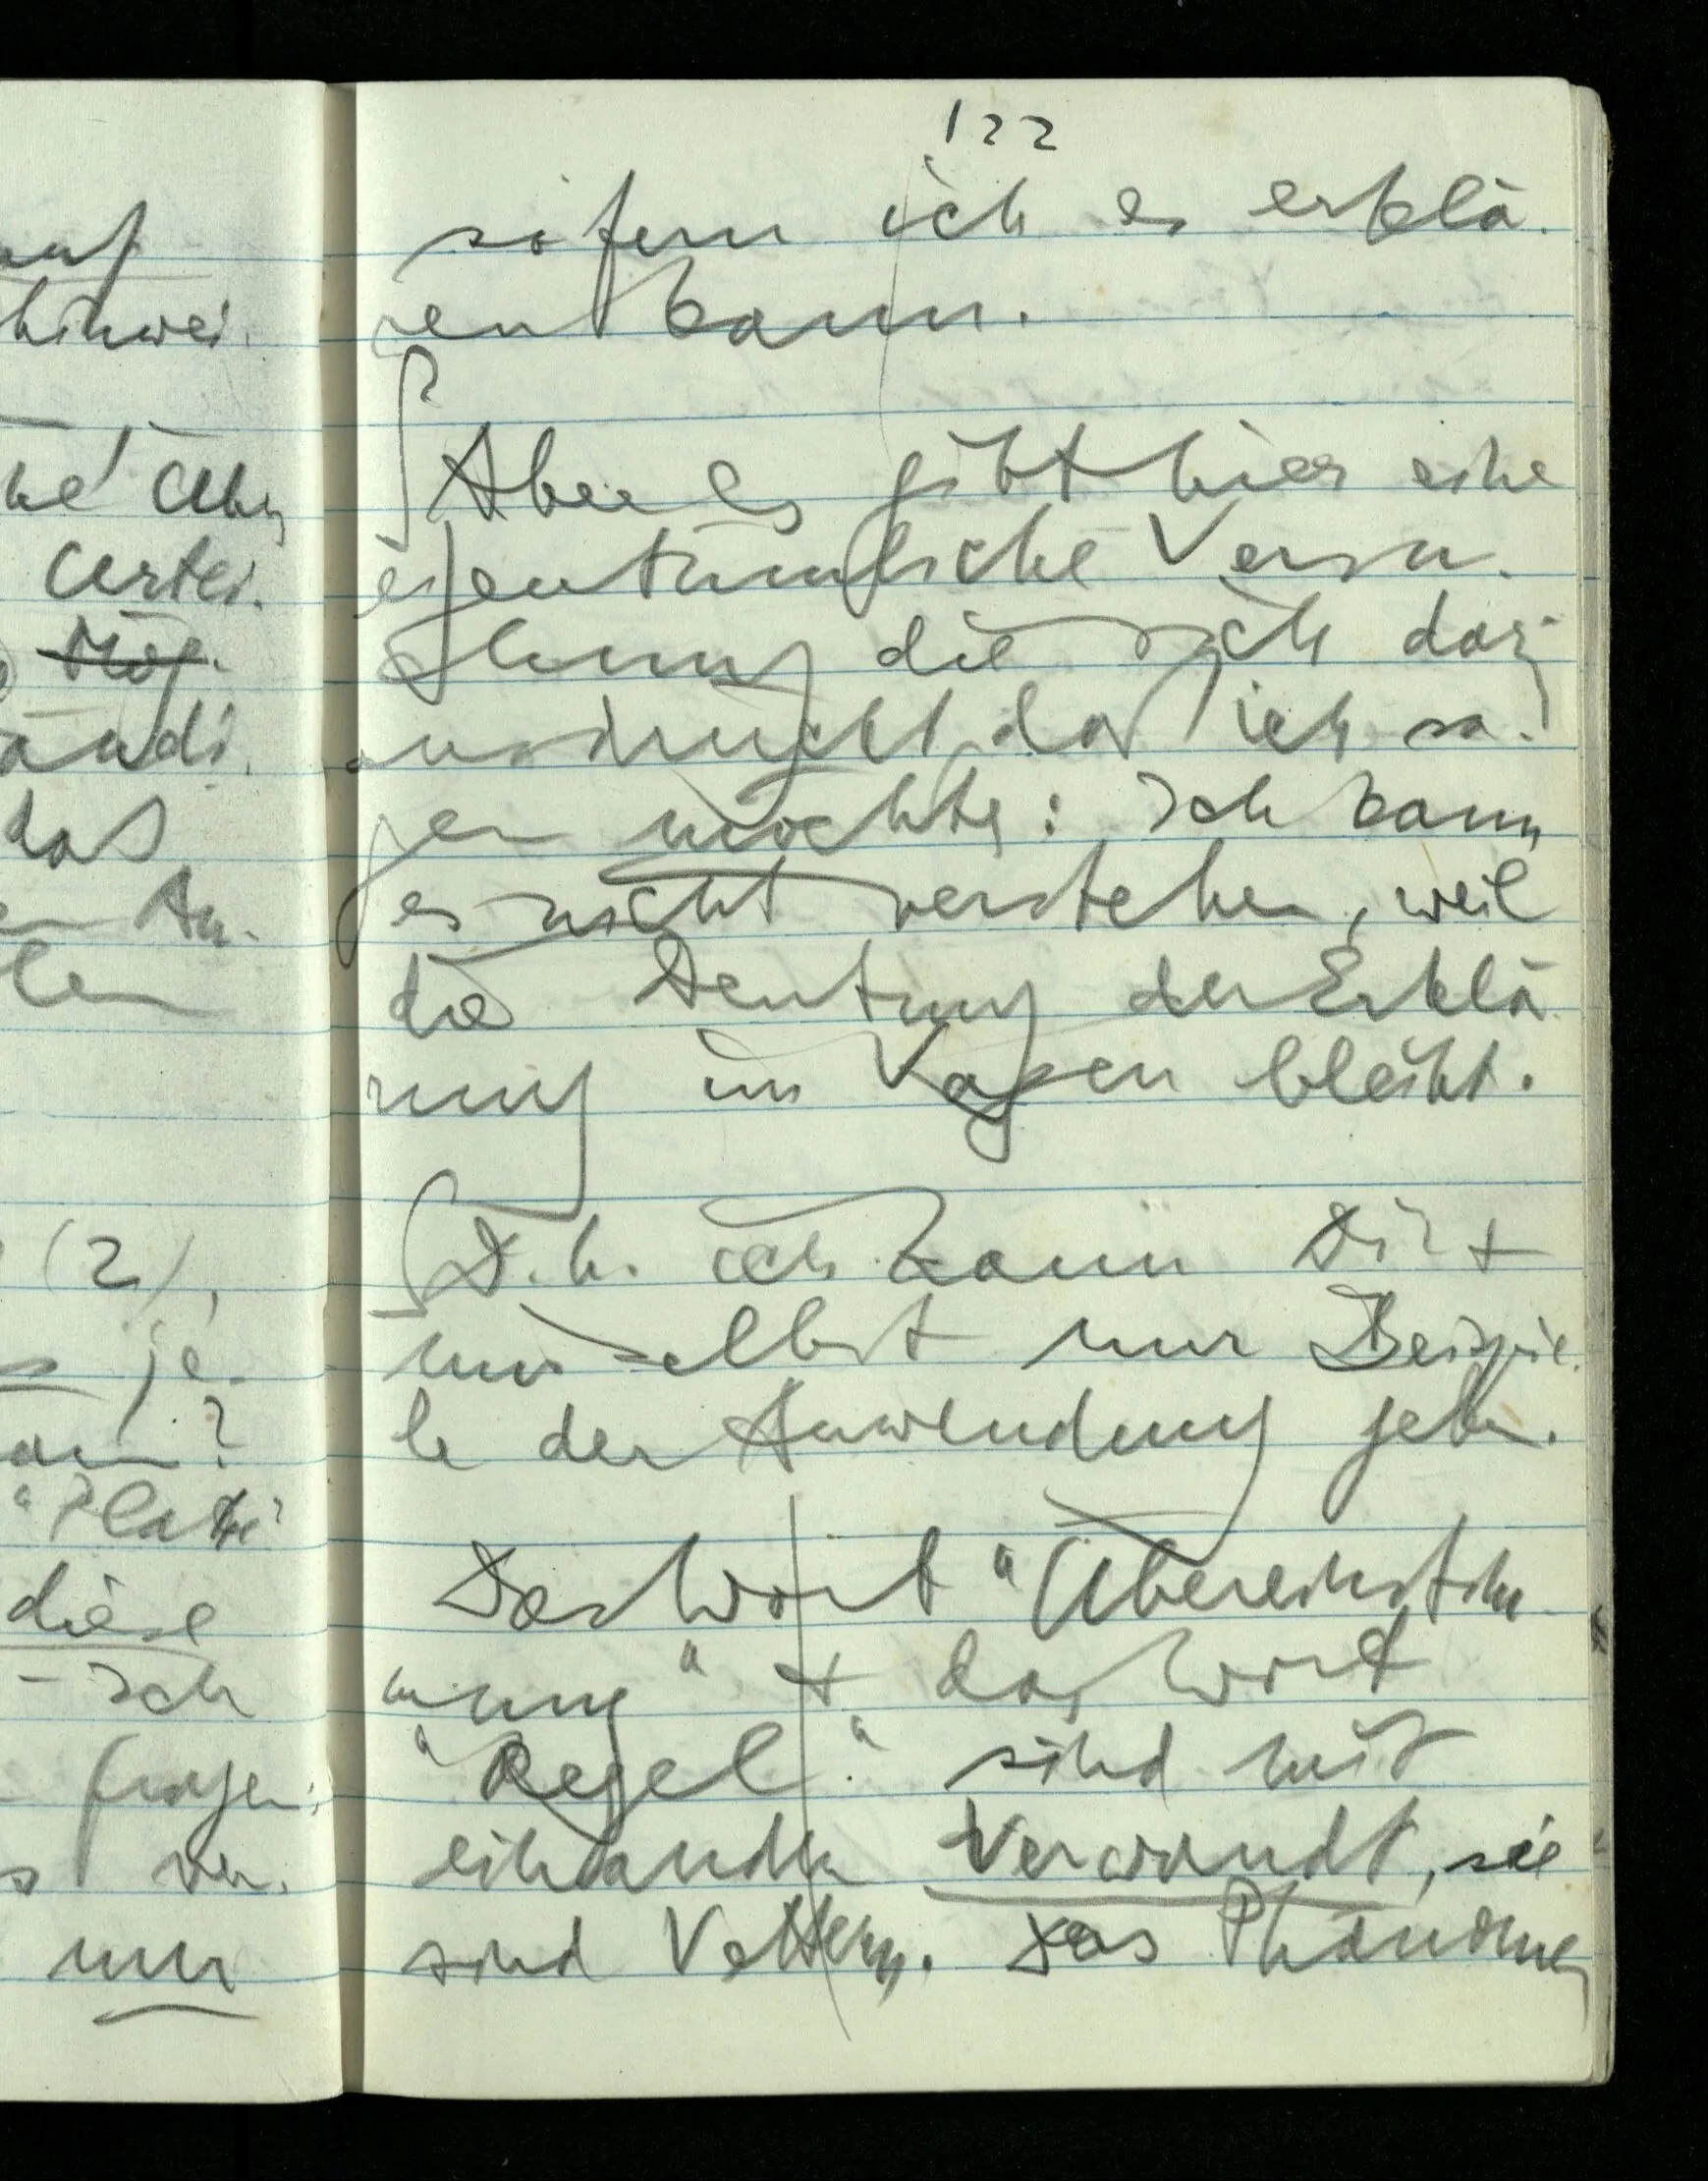 auf
hinwei-
Urtei-
Mög-
ändi-
das
An-
len
(2),
je-
"Platte"
diese
– Ich
fragen:
ver-
nur
122
sofern ich es erklä-
ren kann.
∫ Aber es gibt hier eine
eigentümliche Versu-
chung die sich darin
ausdrückt daß ich sa-
gen möchte: Ich kann
es nicht verstehen, weil
die Deutung der Erklä-
rung im Vagen bleibt.
∫ D.h. ich kann Dir +
mir selbst nur Beispie-
le der Anwendung geben.
Das Wort "Übereinstim-
mung" + das Wort
"Regel" sind mit
einander verwandt, sie
sind Vettern. Das Phänomen